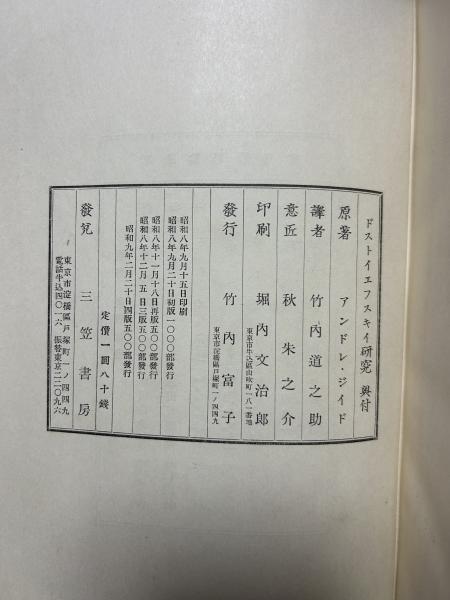 ドストイエフスキイ研究 奥付
原著 アンドレ・ジイド
譯者 竹內道之助
意匠 秋朱之介
印刷 堀內文治郎
東京市牛込區山吹町一八一番地
發行 竹內富子
東京市淀橋區戶塚町一ノ四四九
昭和八年九月十五日印刷
昭和八年九月二十日初版一〇〇〇部發行
昭和八年十一月十八日再版五〇〇部發行
昭和八年十二月五日三版五〇〇部發行
昭和九年二月二十日四版五〇〇部發行
定價一圓八十錢
發兌 三笠書房
東京市淀橋區戶塚町一ノ四四九
電話牛込四〇一六 振替東京二二〇九六